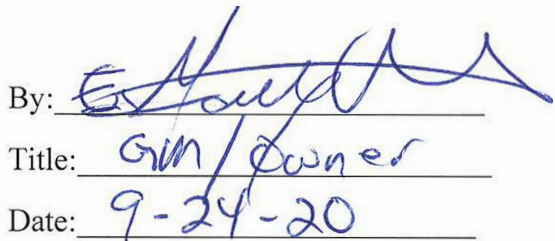 By:
Title: GM/Owner
Date: 9-24-20